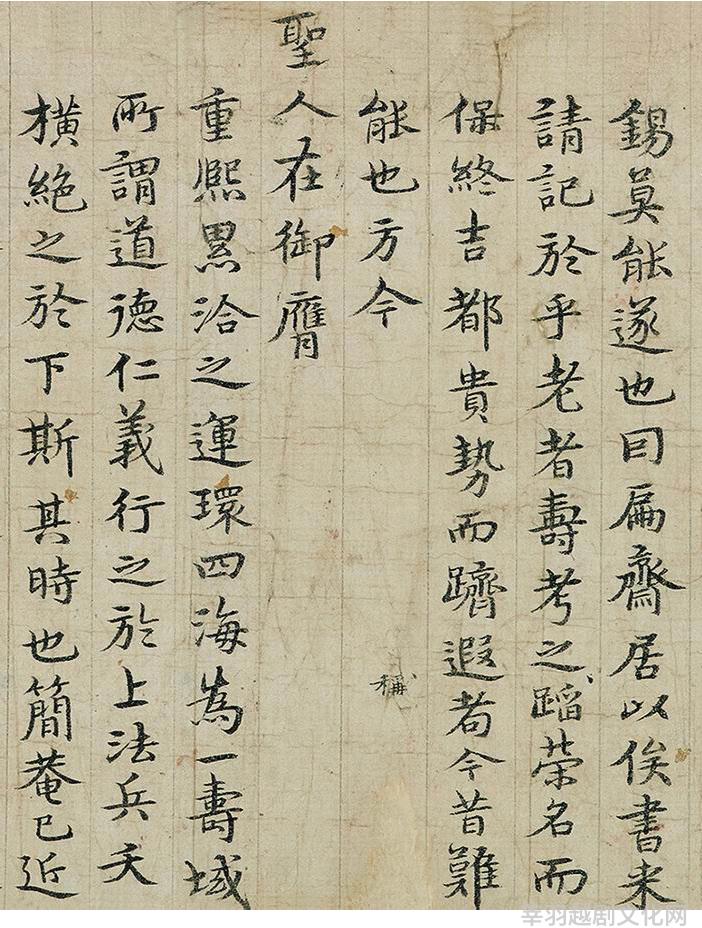 錫莫能遂也囙扁齋居以俟書来
請記於乎老者壽考之蹈荣名而
保終吉都貴勢而躋遐耇今昔難
能也方今 稱
聖人在御膺
重熈累洽之運環四海為一壽域
所謂道德仁義行之於上法兵夭
横絶之於下斯其時也簡菴已近
羽越剧文化网